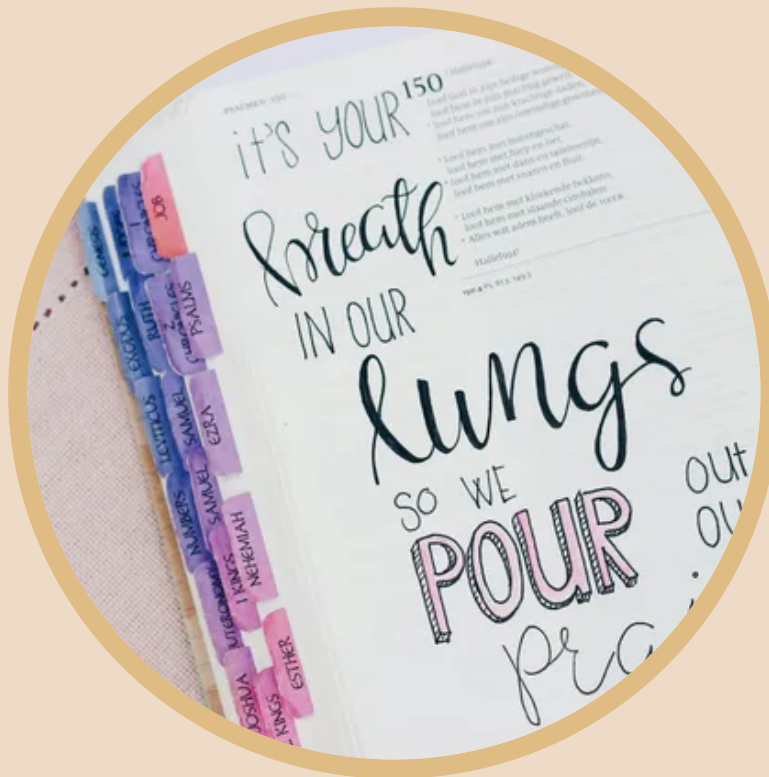 PSALMEN 150
150
Halleluja!
Loof God in zijn heilige
loof hem in zijn machtig gewelf
loof hem om zijn krachtige daden,
loof hem om zijn oneindige
Loof hem met hoorngeschal,
loof hem met harp en lier,
loof hem met dans en tamboerijn,
loof hem met snaren en fluit.
Loof hem met klinkende bekkens,
loof hem met slaande cimbalen.
Alles wat adem heeft, loof de HEER.
Halleluja!
it's YOUR
breath
IN OUR
lungs
SO WE
POUR
OUt
OU
pra
JOB
RUTH
2
PSALMS
EXODUS
LEVITICUS
SAMUEL
EZRA
NUMBERS
SAMUEL
1 KINGS
NEHEMIAH
UTERONOMY
JOSHUA
KINGS
ESTHER